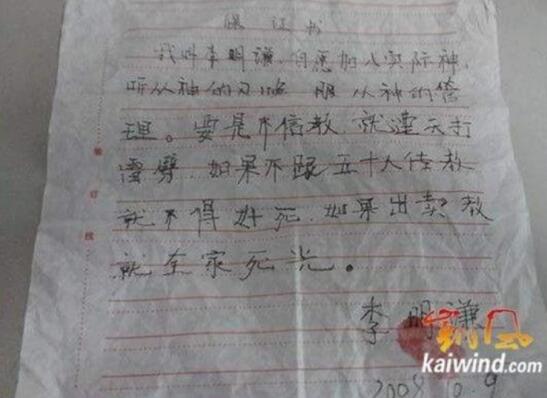 保证书
我叫李明谦,自愿加入实际神,
听从神的 服从神的管
理。要是不信教,就遭天打
雷劈.如果不跟五十人传教
就不得好死.如果出卖教
就全家死光。
李明谦
2008.10.9
凯风
kaiwind.com
装订线